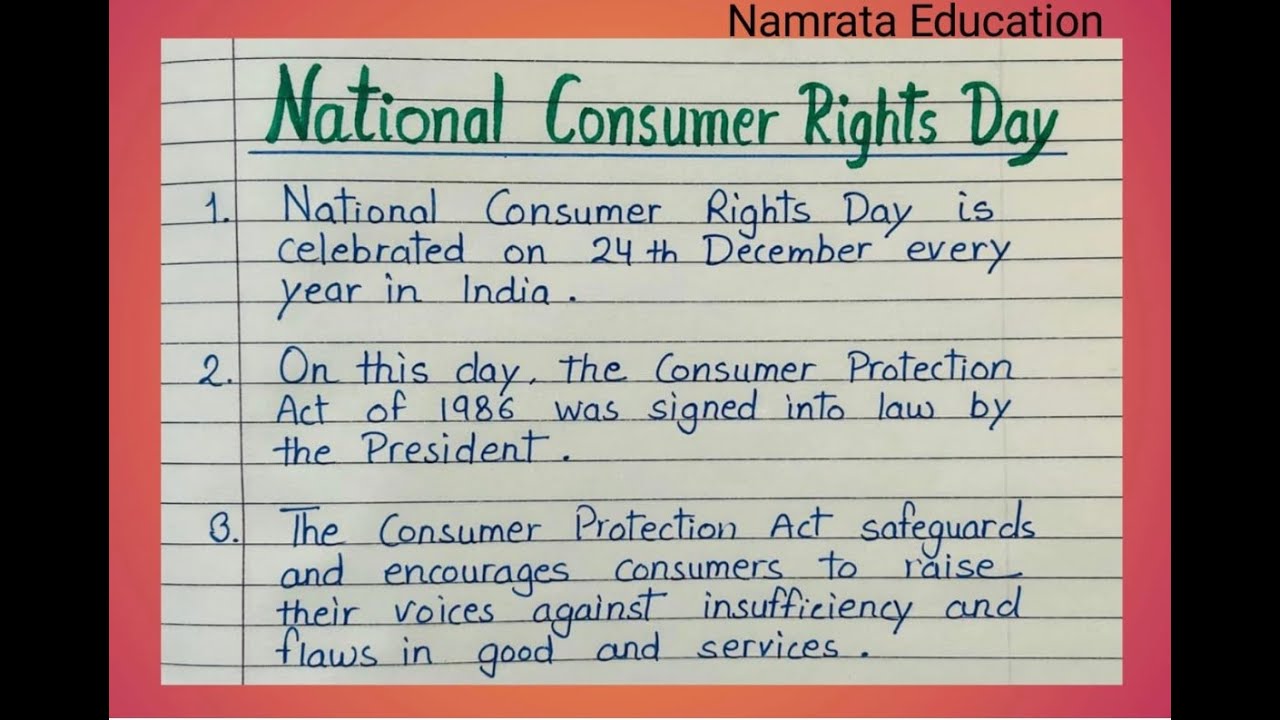 Namrata Education
National Consumer Rights Day
1. National Consumer Rights Day is
celebrated on 24th December every
year in India.
2. On this day, the Consumer Protection
Act of 1986 was signed into law by
the President.
3. The Consumer Protection Act safeguards
and encourages consumers to raise
their voices against insufficiency and
flaws in good and services.